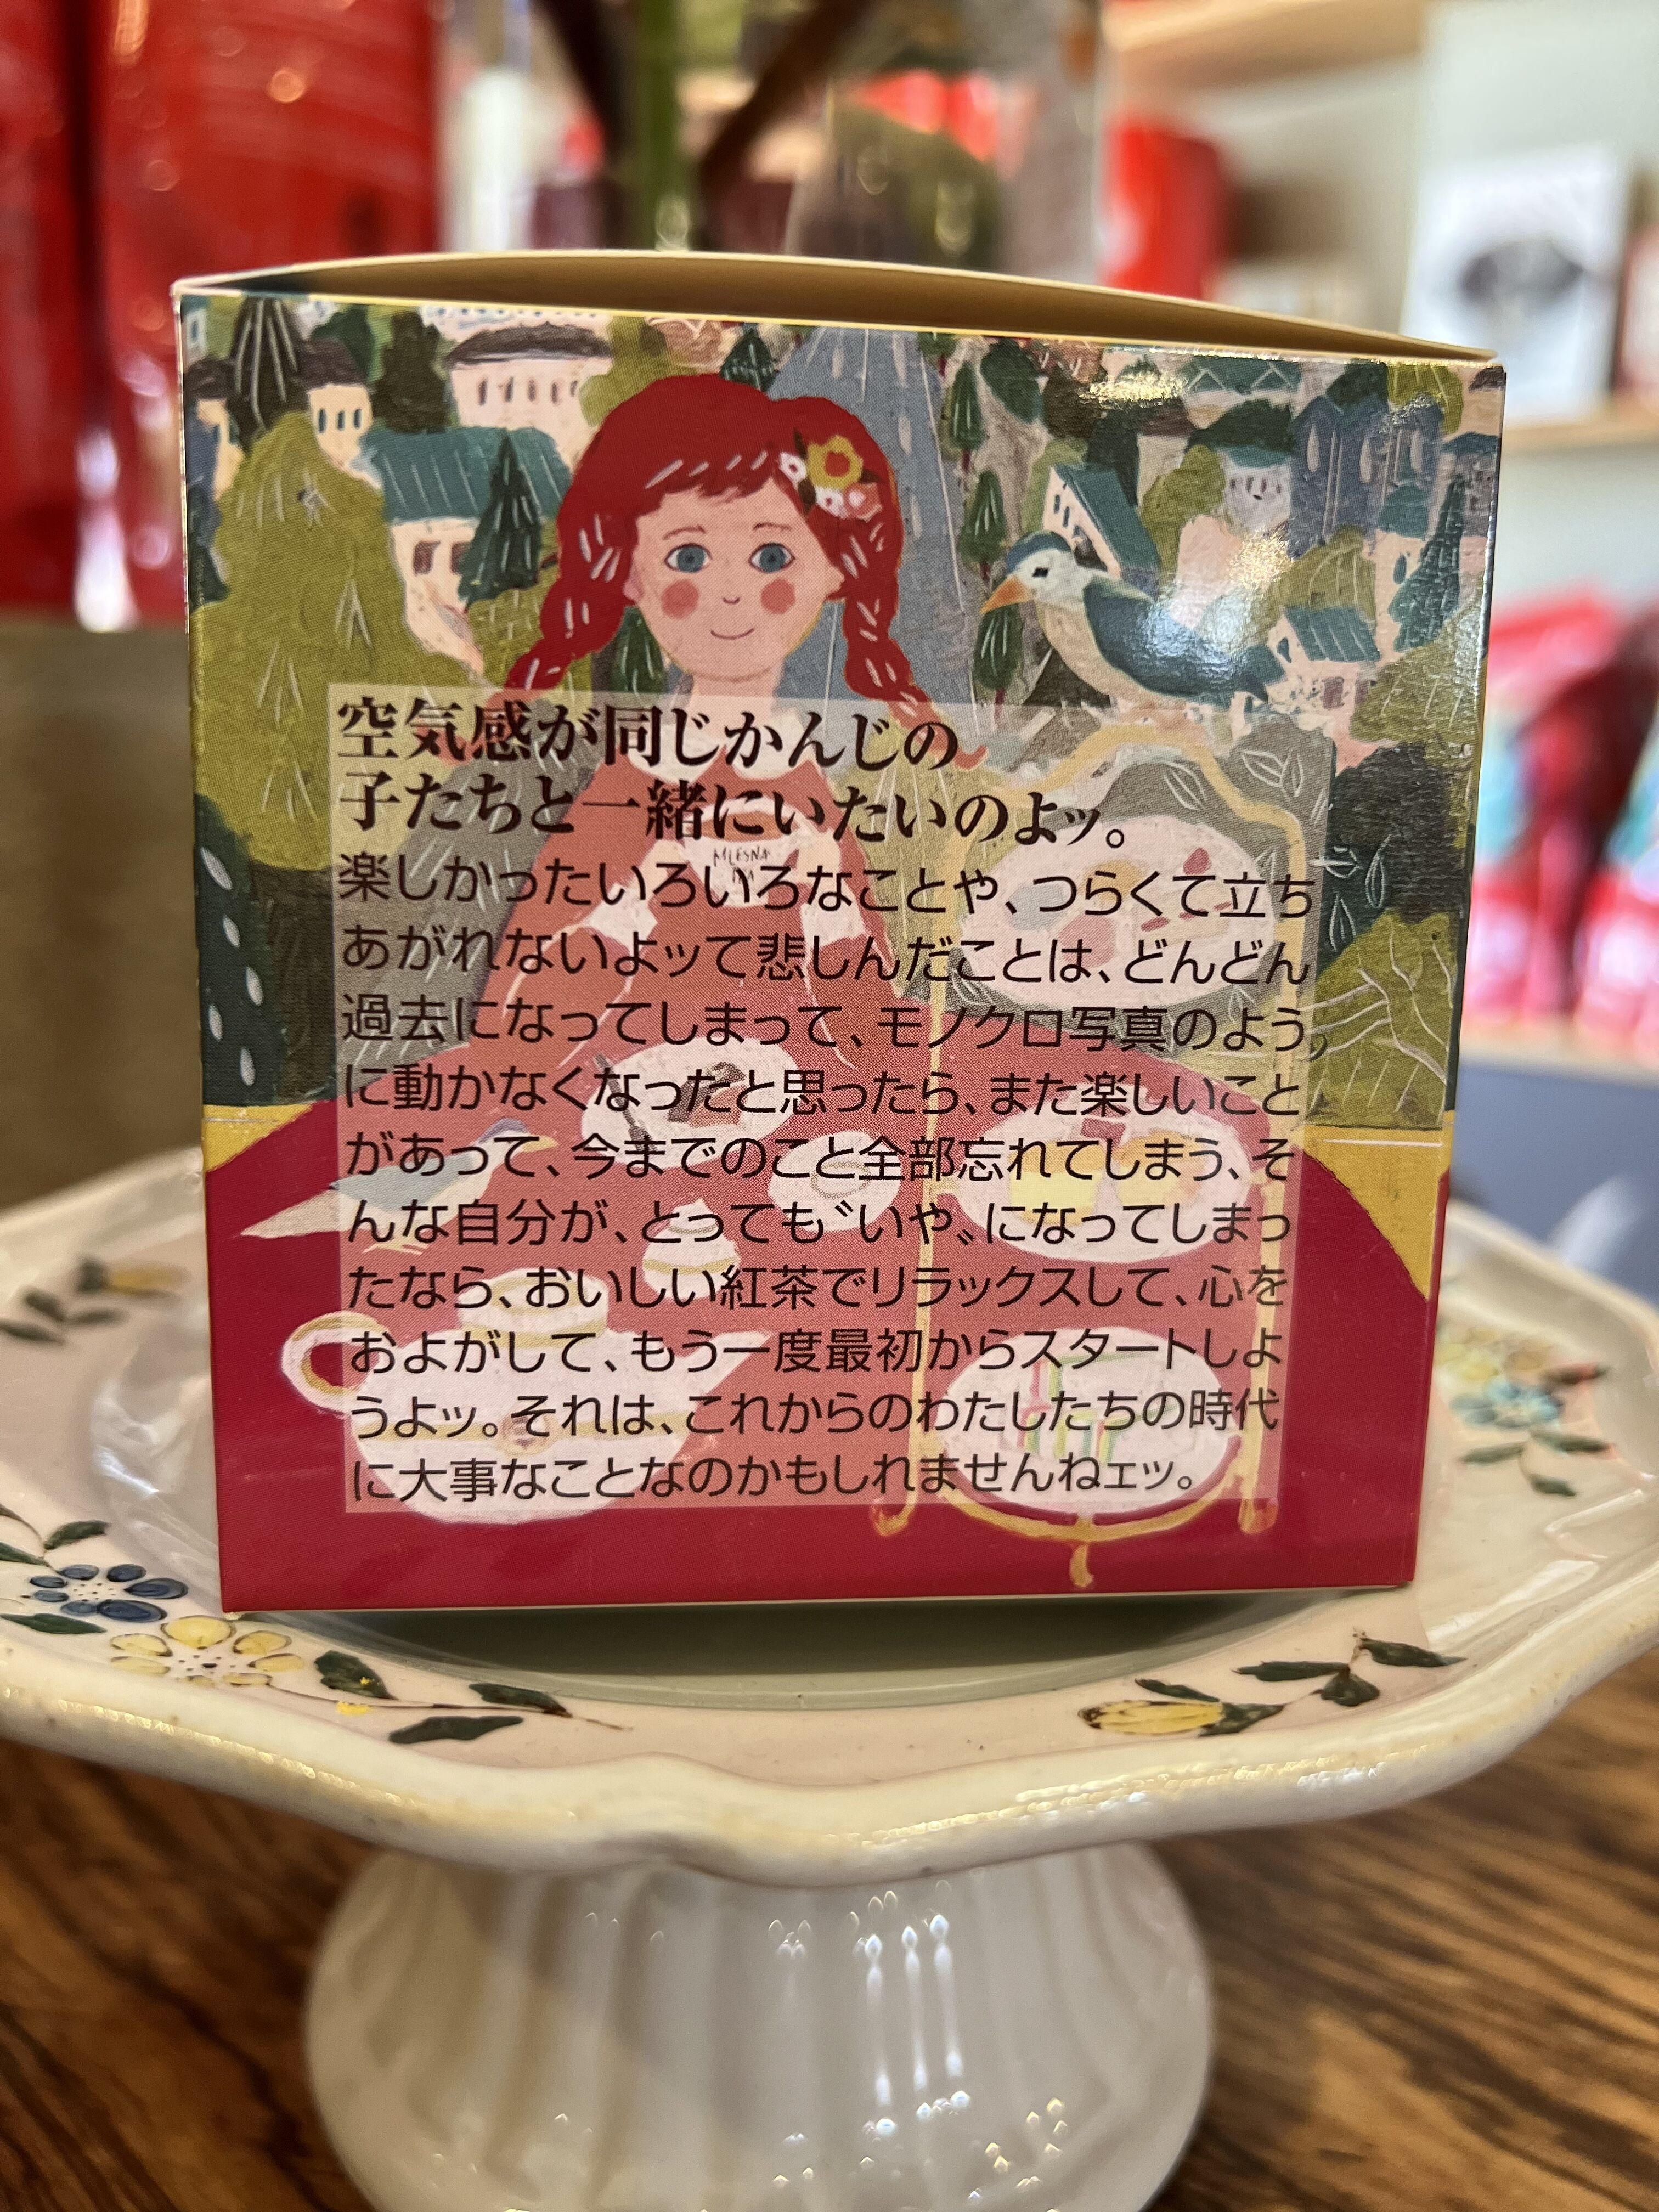 空気感が同じかんじの
子たちと一緒にいたいのよッ。
MLESNA
楽しかったいろいろなことや、つらくて立ち
あがれないよッて悲しんだことは、どんどん
過去になってしまって、モノクロ写真のよう
に動かなくなったと思ったら、また楽しいこと
があって、今までのこと全部忘れてしまう、そ
んな自分が、とっても〝いや〟になってしまっ
たなら、おいしい紅茶でリラックスして、心を
およがして、もう一度最初からスタートしよ
うよッ。それは、これからのわたしたちの時代
に大事なことなのかもしれませんねェッ。